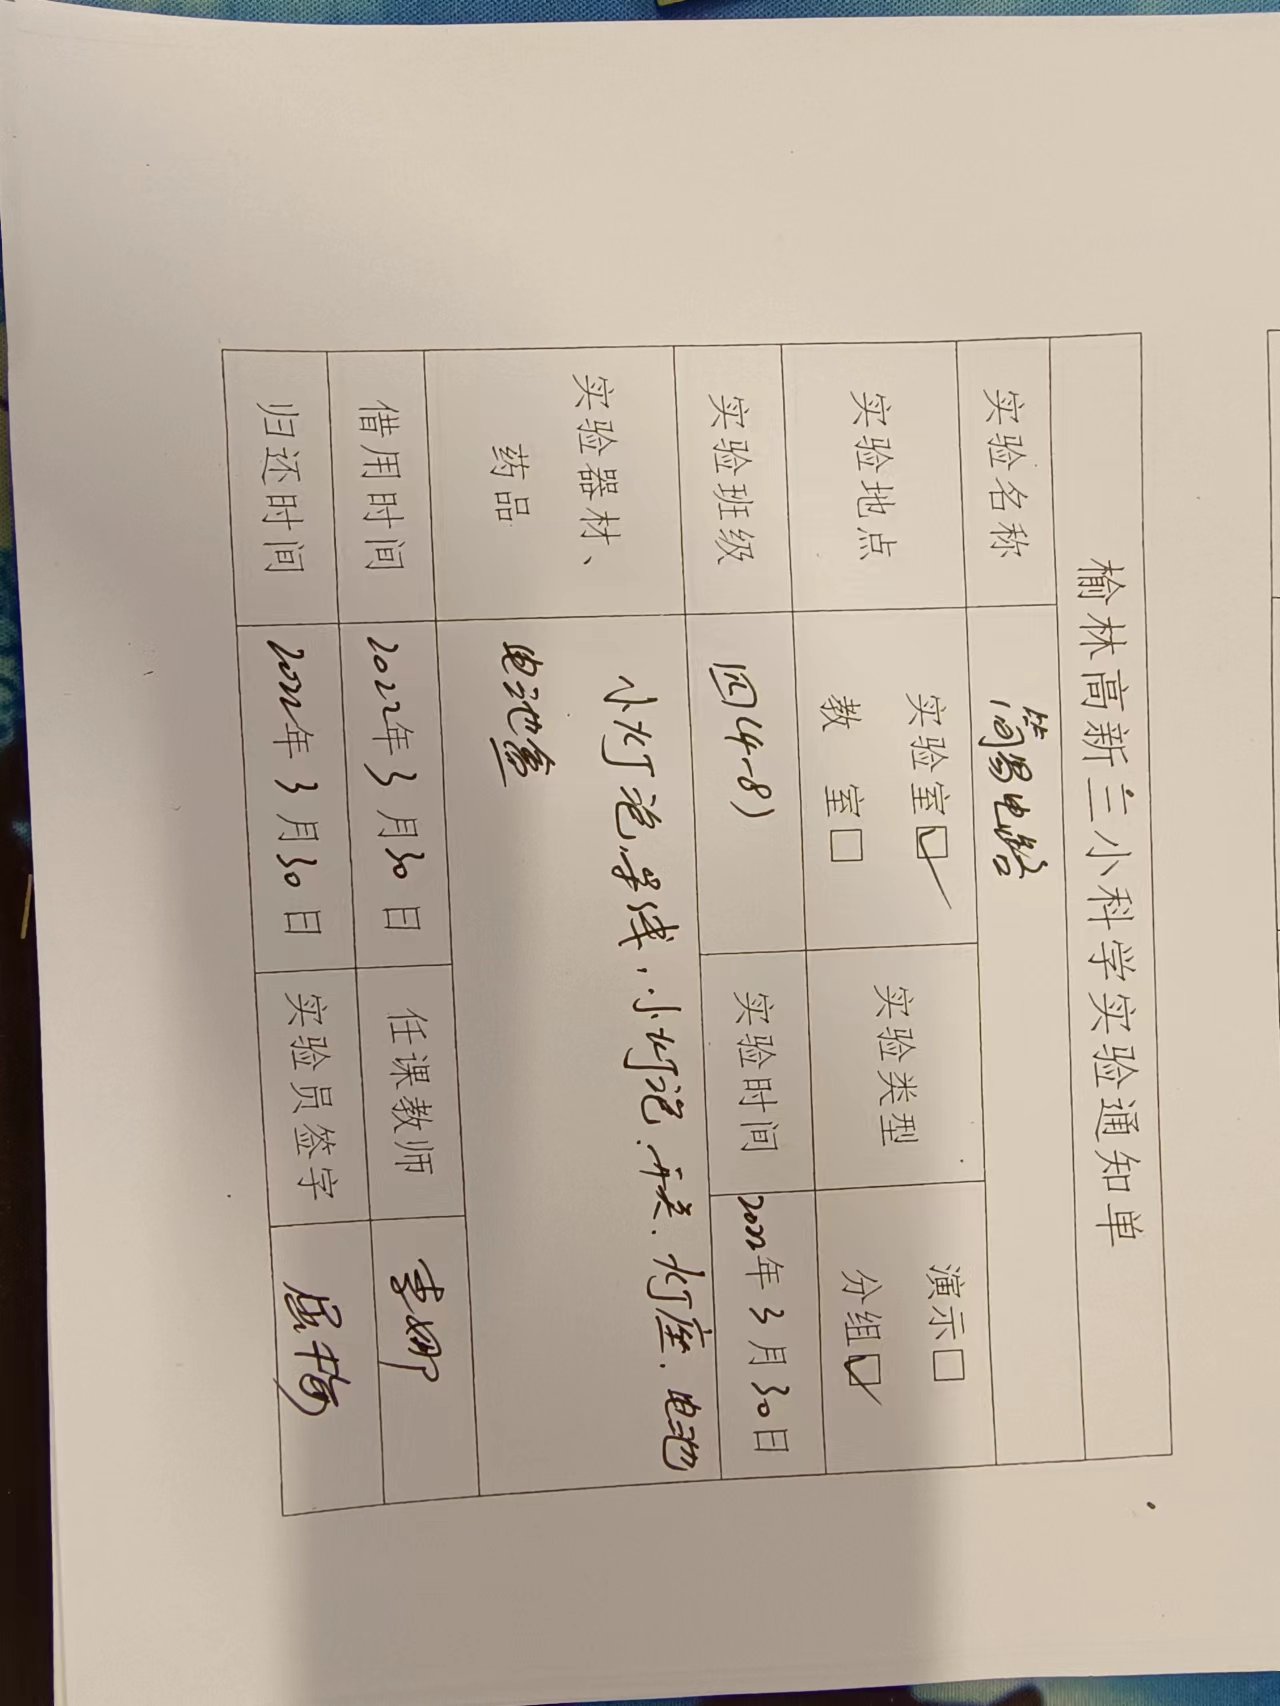 榆林高新三小科学实验通知单
实验名称 简易电路
实验地点 实验室☑ 教 室□ 实验类型 演示□ 分组☑
实验班级 四(4-8) 实验时间 2022年3月30日
实验器材、药品 小灯泡、导线、小灯泡、开关、灯座、电池
电池盒
借用时间 2022年3月30日 任课教师 李娜
归还时间 2022年3月30日 实验员签字